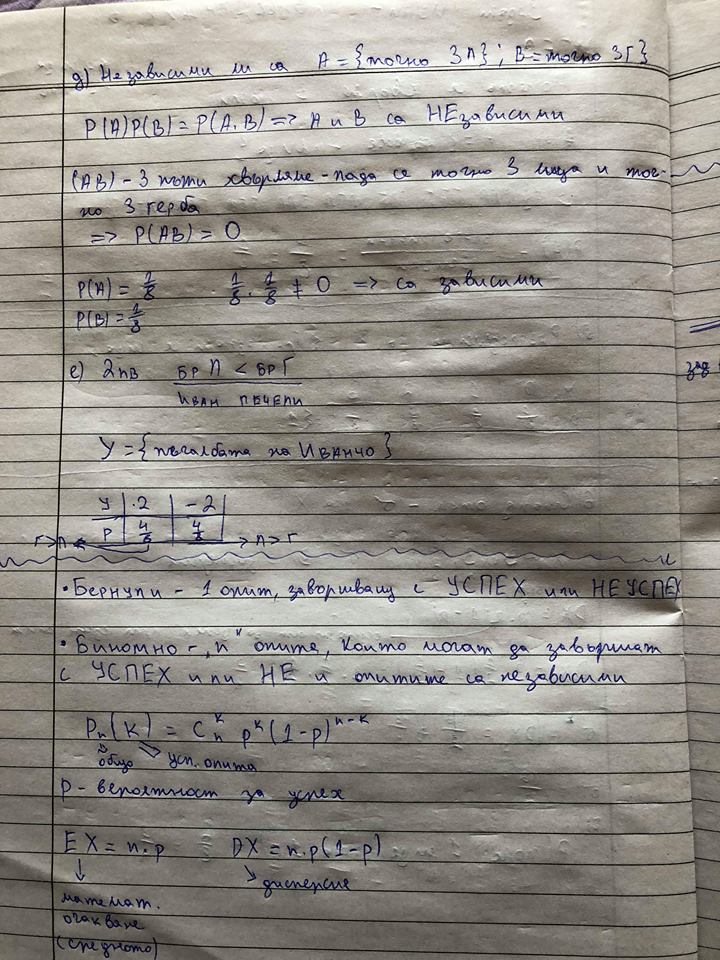 д) Независими ли са A = {точно 3Л}; B = точно 3Г}
P(A)P(B) = P(A.B) => A и B са НЕзависими
(AB) - 3 пъти хвърляне - пада се точно 3 лица и точ-
но 3 герба
=> P(AB) = 0
P(A) = 1/8 1/8 . 1/8 ≠ 0 => са зависими
P(B) = 1/8
е) 2лв бр Л < бр Г
Иван печели
У = {печалбата на Иванчо}
У | 2 | -2
P | 4/8 | 4/8
Г>Л Л>Г
• Бернули - 1 опит, завършващ с УСПЕХ или НЕУСПЕХ
• Биномно - "n" опита, които могат да завършат
с УСПЕХ или НЕ и опитите са независими
Pn(k) = Cn^k p^k (1-p)^n-k
общо усп. опита
P - вероятност за успех
EX = n.p DX = n.p(1-p)
дисперсия
математ.
очакване
(средното)
зад